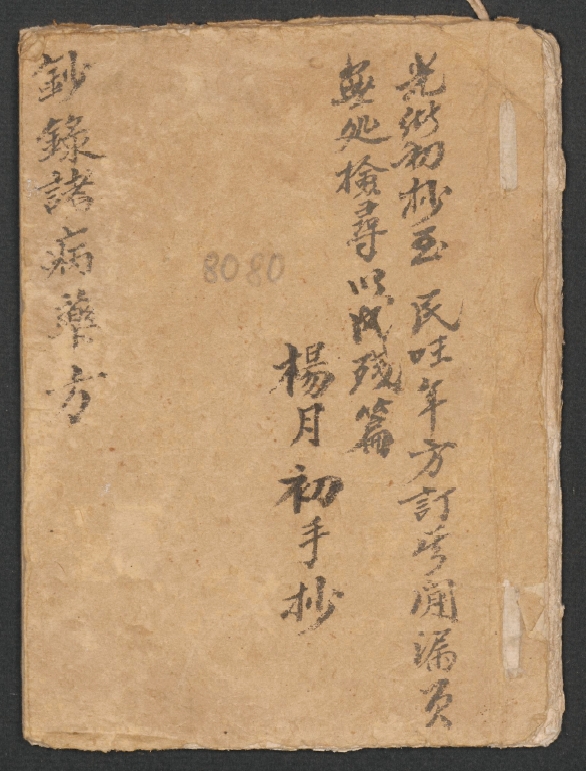 光緒初抄至民年方訂間漏頁
無処檢尋以成殘篇
楊月初手抄
8080
鈔錄諸病藥方